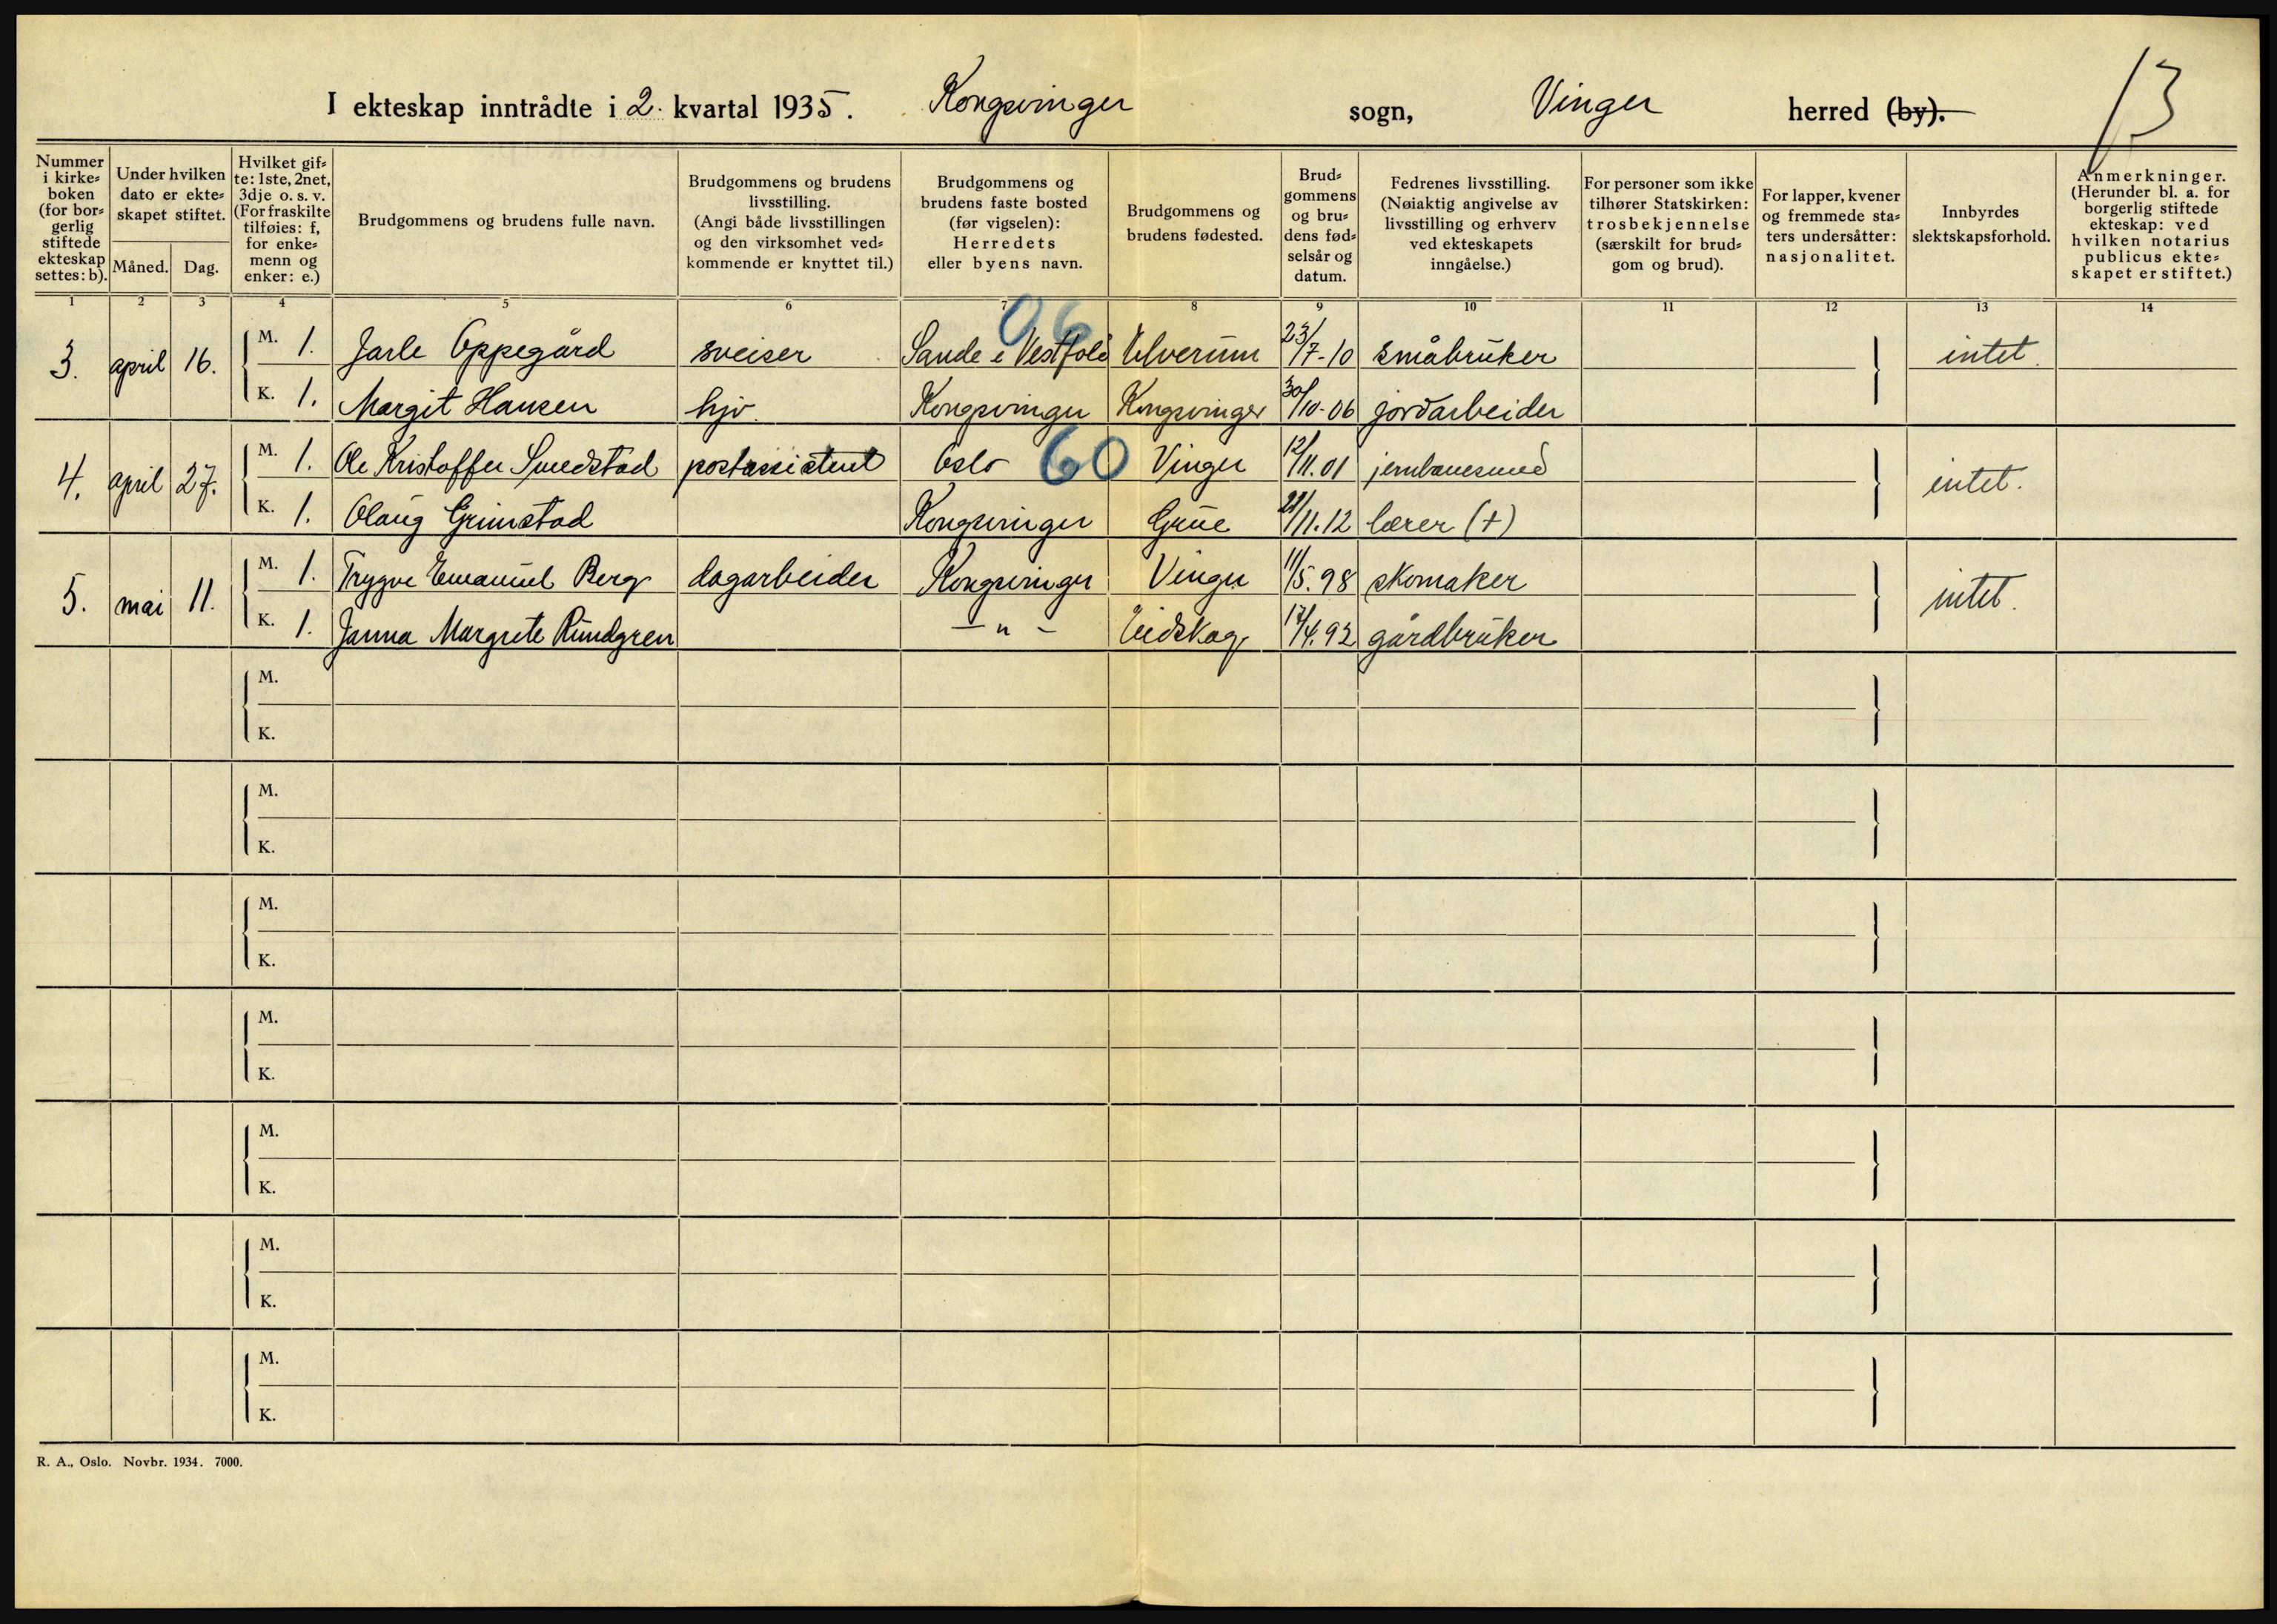 I ekteskap inntrådte i 2. kvartal 1935. Kongsvinger sogn, Vinger herred (by).
13
Nummer i kirke= boken (for bor= gerlig stiftede ekteskap settes: b).
Under hvilken dato er ekte= skapet stiftet.
Måned. Dag.
Hvilket gif= te: 1ste, 2net, 3dje o. s. v. (For fraskilte tilføies: f, for enke= menn og enker: e.)
Brudgommens og brudens fulle navn.
Brudgommens og brudens livsstilling. (Angi både livsstillingen og den virksomhet ved= kommende er knyttet til.)
Brudgommens og brudens faste bosted (før vigselen): Herredets eller byens navn.
Brudgommens og brudens fødested.
Brud= gommens og bru= dens fød= selsår og datum.
Fedrenes livsstilling. (Nøiaktig angivelse av livsstilling og erhverv ved ekteskapets inngåelse.)
For personer som ikke tilhører Statskirken: trosbekjennelse (særskilt for brud= gom og brud).
For lapper, kvener og fremmede sta= ters undersåtter: nasjonalitet.
Innbyrdes slektskapsforhold.
Anmerkninger. (Herunder bl. a. for borgerlig stiftede ekteskap: ved hvilken notarius publicus ekte= skapet er stiftet.)
1 2 3 4 5 6 7 8 9 10 11 12 13 14
06
3. april 16. M. 1. Jarle Oppegård sveiser Sande i Vestfold Elverum 23/7-10 småbruker intet.
K. 1. Margit Hansen hjv. Kongsvinger Kongsvinger 30/10-06 jordarbeider
4. april 27. M. 1. Ole Kristoffer Smedstad postassistent Oslo 60 Vinger 12/11.01 jernbanesmed intet.
K. 1. Olaug Grimstad Kongsvinger Grue 21/11.12 lærer (+)
5. mai 11. M. 1. Trygve Emanuel Berg dagarbeider Kongsvinger Vinger 11/5.98 skomaker intet.
K. 1. Janna Margrete Rundgren — " — Eidskog 17/4.92 gårdbruker
M.
K.
M.
K.
M.
K.
M.
K.
M.
K.
M.
K.
M.
K.
R. A., Oslo. Novbr. 1934. 7000.